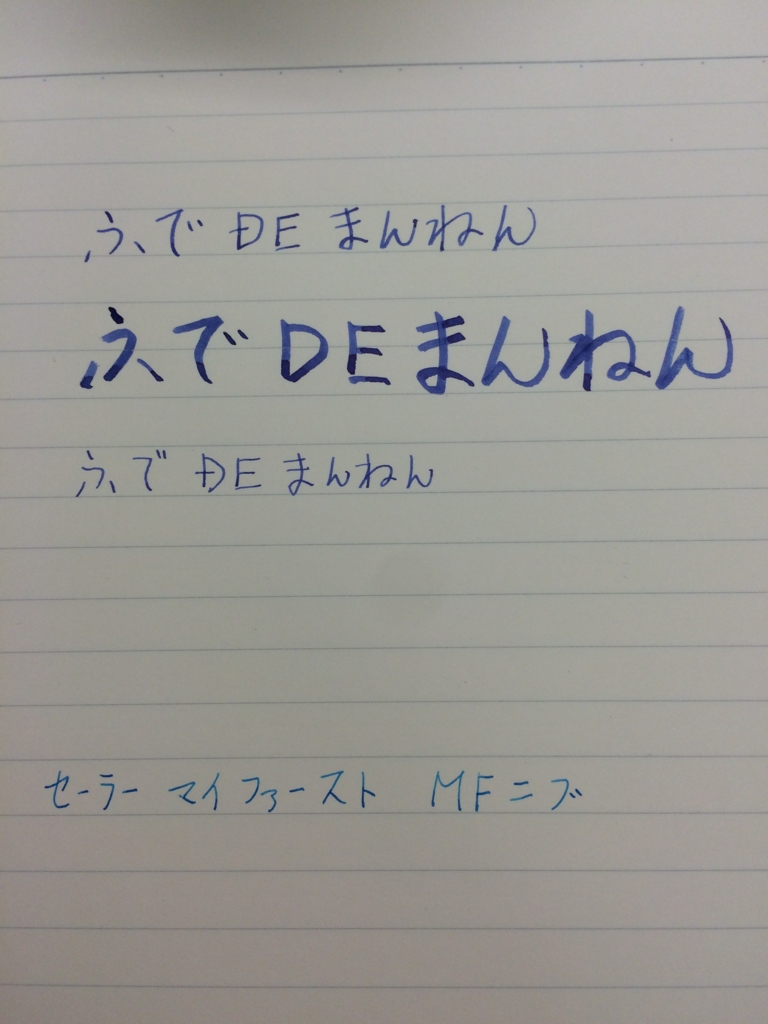 ふでDEまんねん
ふでDEまんねん
ふでDEまんねん
セーラー マイファースト MFニブ